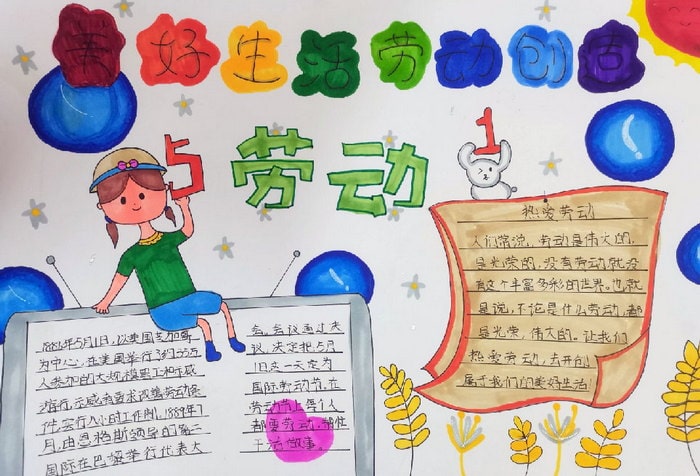 美好生活劳动创造
5 劳动 1
1886年5月1日,以美国芝加哥
为中心,在美国举行了约35万
人参加的大规模罢工和示威
游行,示威者要求改善劳动条
件,实行八小时工作制,1889年7
月,由恩格斯领导的第二
国际在巴黎举行代表大
会,会议通过决
议,决定把5月
1日这一天定为
国际劳动节,在
劳动节上每个人
都要劳动,都忙
干活做事。
热爱劳动
人们常说,劳动是伟大的,
是光荣的,没有劳动就没
有这个丰富多彩的世界,也就
是说,不论是什么劳动,都
是光荣,伟大的,让我们
热爱劳动,去开创
属于我们的美好生活!